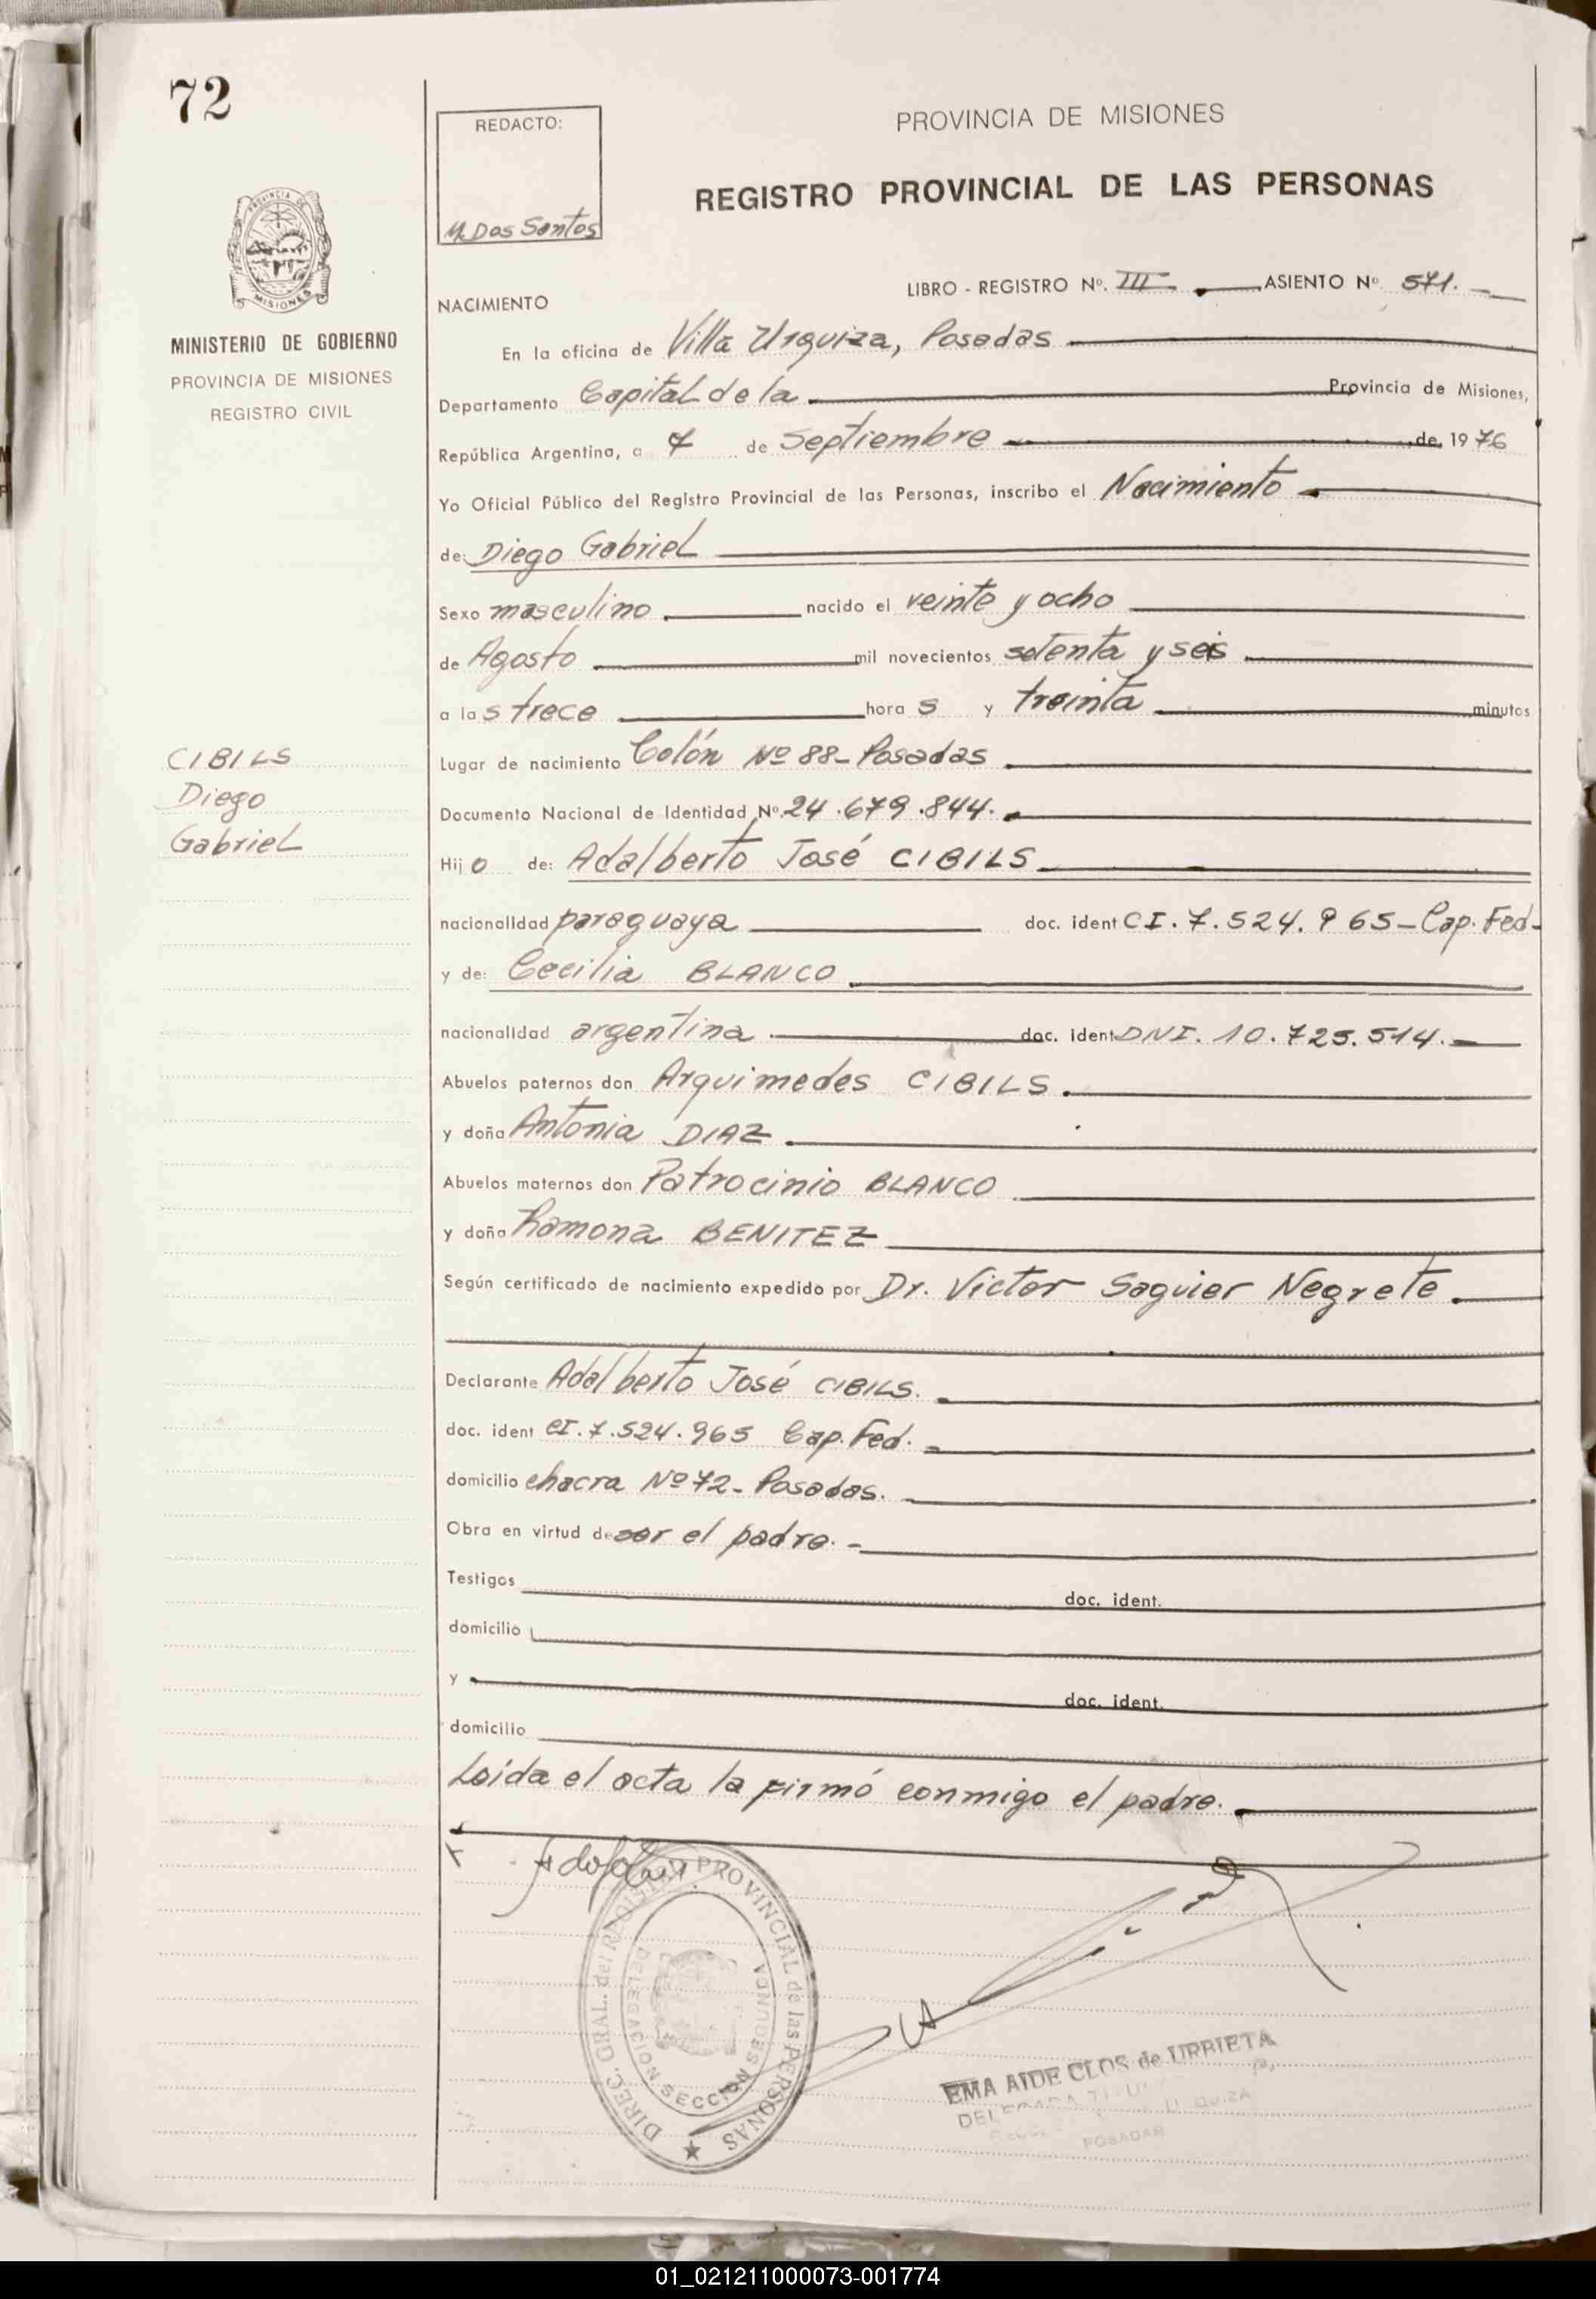 72
REDACTO:
M. Dos Santos
PROVINCIA DE MISIONES
REGISTRO PROVINCIAL DE LAS PERSONAS
PROVINCIA DE
MISIONES
MINISTERIO DE GOBIERNO
PROVINCIA DE MISIONES
REGISTRO CIVIL
LIBRO - REGISTRO Nº. III ASIENTO Nº 571.
NACIMIENTO
En la oficina de Villa Urquiza, Posadas
Departamento Capital de la Provincia de Misiones,
República Argentina, a 7 de Septiembre de 1976
Yo Oficial Público del Registro Provincial de las Personas, inscribo el Nacimiento
de: Diego Gabriel
Sexo masculino nacido el veinte y ocho
de Agosto mil novecientos setenta y seis
a las trece horas y treinta minutos
CIBILS
Diego
Gabriel
Lugar de nacimiento Colón Nº 88- Posadas
Documento Nacional de Identidad Nº 24.679.844.
Hijo de: Adalberto José CIBILS
nacionalidad paraguaya doc. ident CI. 7.524.965- Cap. Fed-
y de: Cecilia BLANCO
nacionalidad argentina doc. ident DNI. 10.725.514.
Abuelos paternos don Arquimedes CIBILS.
y doña Antonia DIAZ
Abuelos maternos don Patrocinio BLANCO
y doña Ramona BENITEZ
Según certificado de nacimiento expedido por Dr. Victor Saguier Negrete.
Declarante Adalberto José CIBILS.
doc. ident CI. 7.524.965 Cap. Fed.
domicilio chacra Nº 72- Posadas.
Obra en virtud de ser el padre.-
Testigos doc. ident.
domicilio
y doc. ident.
domicilio
Leida el acta la firmó conmigo el padre.
DIREC. GRAL. del REGISTRO PROVINCIAL de las PERSONAS
DELEGACION SECCION SEGUNDA
EMA AIDE CLOS de URRIETA
POSADAS
01_021211000073-001774